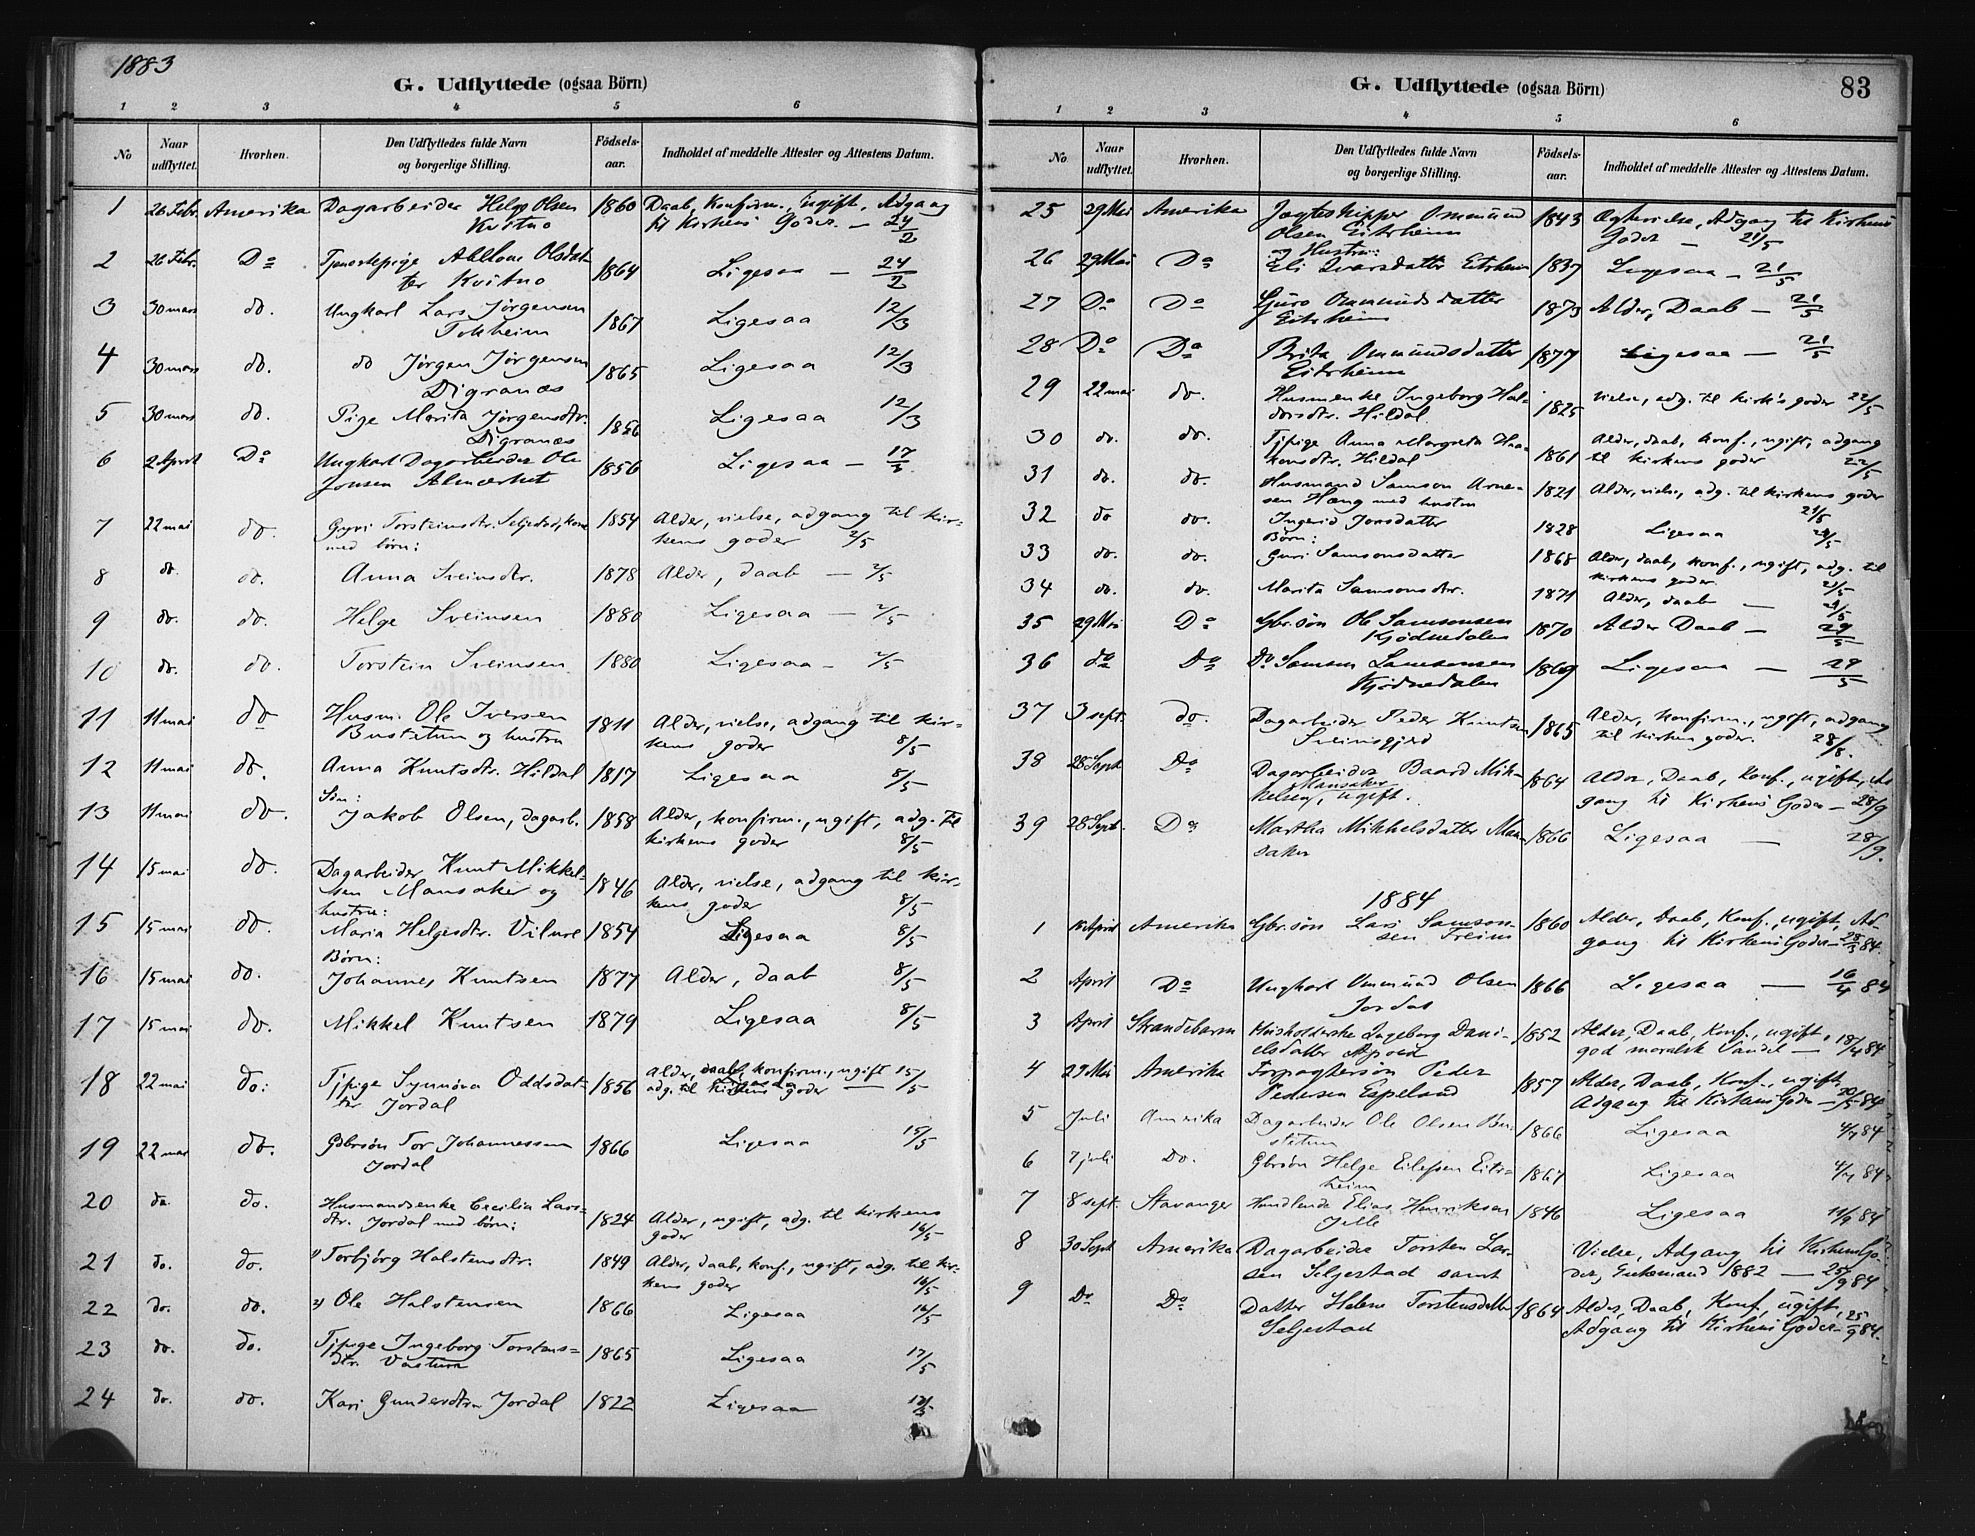 1883
G. Udflyttede (ogsaa Börn)
1 2 3 4 5 6
No Naar udflyttet. Hvorhen. Den Udflyttedes fulde Navn og borgerlige Stilling. Födsels-aar. Indholdet af meddelte Attester og Attestens Datum.
1 26 Febr. Amerika Dagarbeider Helge Olsen 1860 Daab, Konfirm., ugift, Adgang
Kvitno til Kirkens Goder. — 24/2
2 26 Febr. Do Tjenestepige Olsdat- 1864 Ligesaa — 24/2
ter Kvitno
3 30 mars do. Ungkarl Lars Jørgensen 1867 Ligesaa 12/3
Tokheim
4 30 mars do. do Jørgen Jørgensen 1865 Ligesaa 12/3
Digranæs
5 30 mars do. Pige Marita Jørgensdtr. 1856 Ligesaa 12/3
Digranæs
6 2 April Do Ungkarl Dagarbeider Ole 1856 Ligesaa — 17/3
Jonsen Almerket
7 22 mai do. Gyri Torsteinsdtr. Seljestad, kone 1854 Alder, vielse, adgang til kir-
med börn: kens goder 2/5
8 do. do. Anna Sveinsdtr. 1878 Alder, daab — 2/5
9 do. do. Helge Sveinsen 1880 Ligesaa — 2/5
10 do. do. Torstein Sveinsen 1880 Ligesaa — 2/5
11 11 mai do Husm. Ole Iversen 1811 Alder, vielse, adgang til kir-
Bustetun og hustru kens goder 8/5
12 11 mai do. Anna Knutsdtr. Hildal 1817 Ligesaa 8/5
Sön:
13 11 mai do. Jakob Olsen, dagarb. 1858 Alder, konfirm., ugift, adg. til
kirkens goder 8/5
14 15 mai do. Dagarbeider Knut Mikkel- 1846 Alder, vielse, adgang til kir-
sen Mansaker og kens goder 8/5
hustru:
15 15 mai do. Maria Helgesdtr. Vilure 1854 Ligesaa 8/5
Börn:
16 15 mai do. Johannes Knutsen 1877 Alder, daab 8/5
17 15 mai do. Mikkel Knutsen 1879 Ligesaa 8/5
18 22 mai do: Tjpige Synnöva Oddsdat- 1856 Alder, daab, konfirm., ugift 15/5
ter Jordal adg. til kirkens goder
19 22 mai do. Gbrsön Tor Johannessen 1866 Ligesaa 15/5
Jordal
20 do. do. Husmandsenke Cecilia Lars- 1824 Alder, ugift, adg. til kirkens
dtr. Jordal med börn: goder 16/5
21 do. do. 1) Torbjörg Halstensdtr. 1849 Alder, daab, konf., ugift, adg. til kir-
kens goder 16/5
22 do. do. 2) Ole Halstensen 1866 Ligesaa 16/5
23 do. do. Tjpige Ingeborg Torstens- 1865 Ligesaa 17/5
dtr.
24 do. do. Kari Gunders Jordal 1822 Ligesaa
G. Udflyttede (ogsaa Börn) 83
1 2 3 4 5 6
No Naar udflyttet. Hvorhen. Den Udflyttedes fulde Navn og borgerlige Stilling. Födsels-aar. Indholdet af meddelte Attester og Attestens Datum.
25 29 Mai Amerika Jægteskipper Ommund 1843 Ægtevielse, Adgang til Kirkens
Olsen Eitrheim Goder — 21/5
og Hustru:
26 29 Mai Do Eli Ivarsdatter Eitrheim 1837 Ligesaa — 21/5
27 Do Do Guro Ommundsdatter 1873 Alder, Daab — 21/5
Eitrheim
28 Do Do Brita Ommundsdatter 1877 Ligesaa — 21/5
Eitrheim
29 22 mai do. Husmenke Ingeborg Hal- 1825 vielse, adg. til kirk's goder 22/5
dorsdtr. Hildal
30 do. do. Tjpige Anna Margreta Haa- 1861 Alder, daab, konf., ugift, adgang
konsdtr. Hildal til kirkens goder 22/5
31 do. do. Husmand Samson Arne- 1821 Alder, vielse, adg. til kirkens goder
sen Hæng med hustru 21/5
32 do do. Ingerid Jonsdatter 1828 Ligesaa 21/5
Börn:
33 do. do. Guri Samsonsdatter 1868 Alder, daab, konf., ugift, adg. til
kirkens goder. 21/5
34 do. do. Marita Samsonsdtr. 1871 Alder, daab — 21/5
35 29 Mai Do Gbr.søn Ole Samsonsen 1870 Alder Daab — 29/5
Kjødnedalen
36 do Do Do Samson Samsonsen 1869 Ligesaa — 29/5
Kjødnedalen
37 3 sept. do. Dagarbeider Peder Knutsen 1865 Alder, konfirm., ugift, adgang
Sveinsgjerd til kirkens goder. 28/8.
38 28 Sept Do Dagarbeider Baard Mik- 1864 Alder, Daab, Konf., ugift, Ad
Mansaker
kelsen, ugift. gang til Kirkens Goder — 28/9
39 28 Sept. Do Martha Mikkelsdatter Man 1866 Ligesaa — 28/9.
saker
1884
1 April Amerika Gbr.søn Lars Samson- 1860 Alder, Daab, Konf., ugift, Ad
sen Freim gang til Kirkens Goder — 28/3 84.
2 April Do Ungkarl Ommund Olsen 1866 Ligesaa — 16/4 84
Jordal
3 April Strandebarm Husholderske Ingeborg Dani- 1852 Alder, Daab, Konf., ugift,
elsdatter Apold god moralsk Vandel — 18/4 84
4 29 Mai Amerika Forpagtersøn Peder 1857 Alder, Daab, Konf., ugift,
Pedersen Espeland Adgang til Kirkens Goder — 20/5 84
5 Juli Amerika Dagarbeider Ole Olsen Bu- 1866 Ligesaa 4/7 84
stetun
6 7 juli Do. Gbrsön Helge Eilefsen Eitr- 1867 Ligesaa 4/7 84
heim
7 8 sept. Stavanger Handlende Elias Henriksen 1846 Ligesaa 11/9 84
8 30 Sept Amerika Dagarbeider Torsten Lar- Vielse, Adgang til Kirkens Go-
sen Seljestad samt der, Enkemand 1882 — 25/9 84
9 Do Do Datter Helene Torstensdatter 1864 Alder, Daab, Konf, ugift,
Seljestad Adgang til Kirkens Goder — 25/9 84.